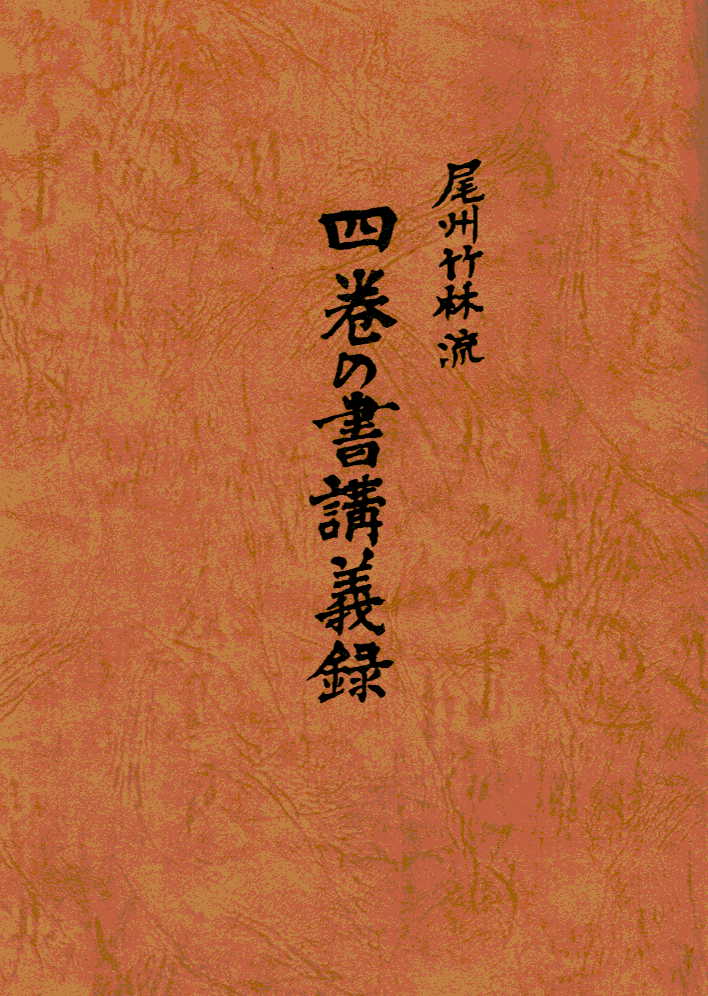 尾州竹林流
四巻の書講義録